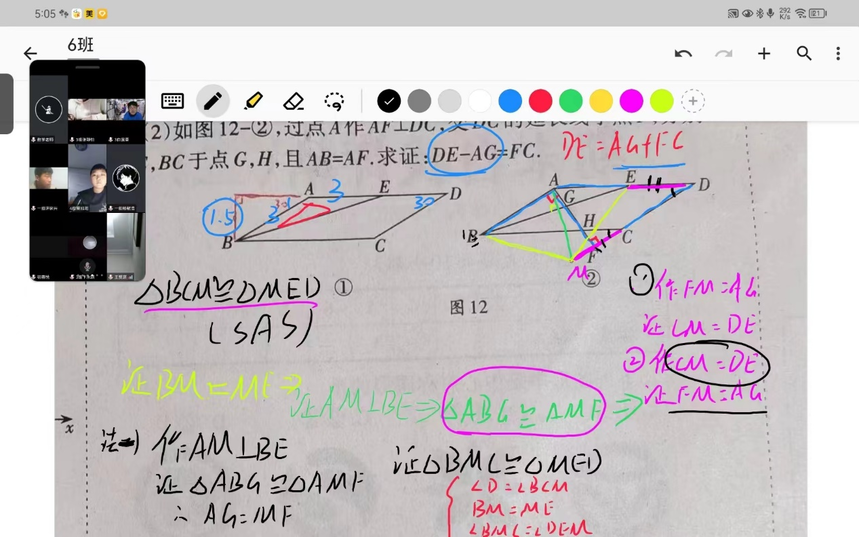 5:05
292 K/s
6班
(2)如图12-②,过点A作AF⊥DC,
,BC于点G,H,且AB=AF.求证:DE-AG=FC.
DE=AG+FC
A 3 E D
1.5 3 30
B C
①
A E D
G
B H C
F
M ②
图12
△BCM≌△MED
(SAS)
①作FM=AG
证CM=DE
②作CM=DE
证FM=AG
证BM=ME⇒
证AM⊥BE⇒△ABG≌△AMF⇒
x
法一)作AM⊥BE
证△ABG≌△AMF
∴AG=MF
证△BMC≌△MED
∠D=∠BCM
BM=ME
∠BMC=∠DEM